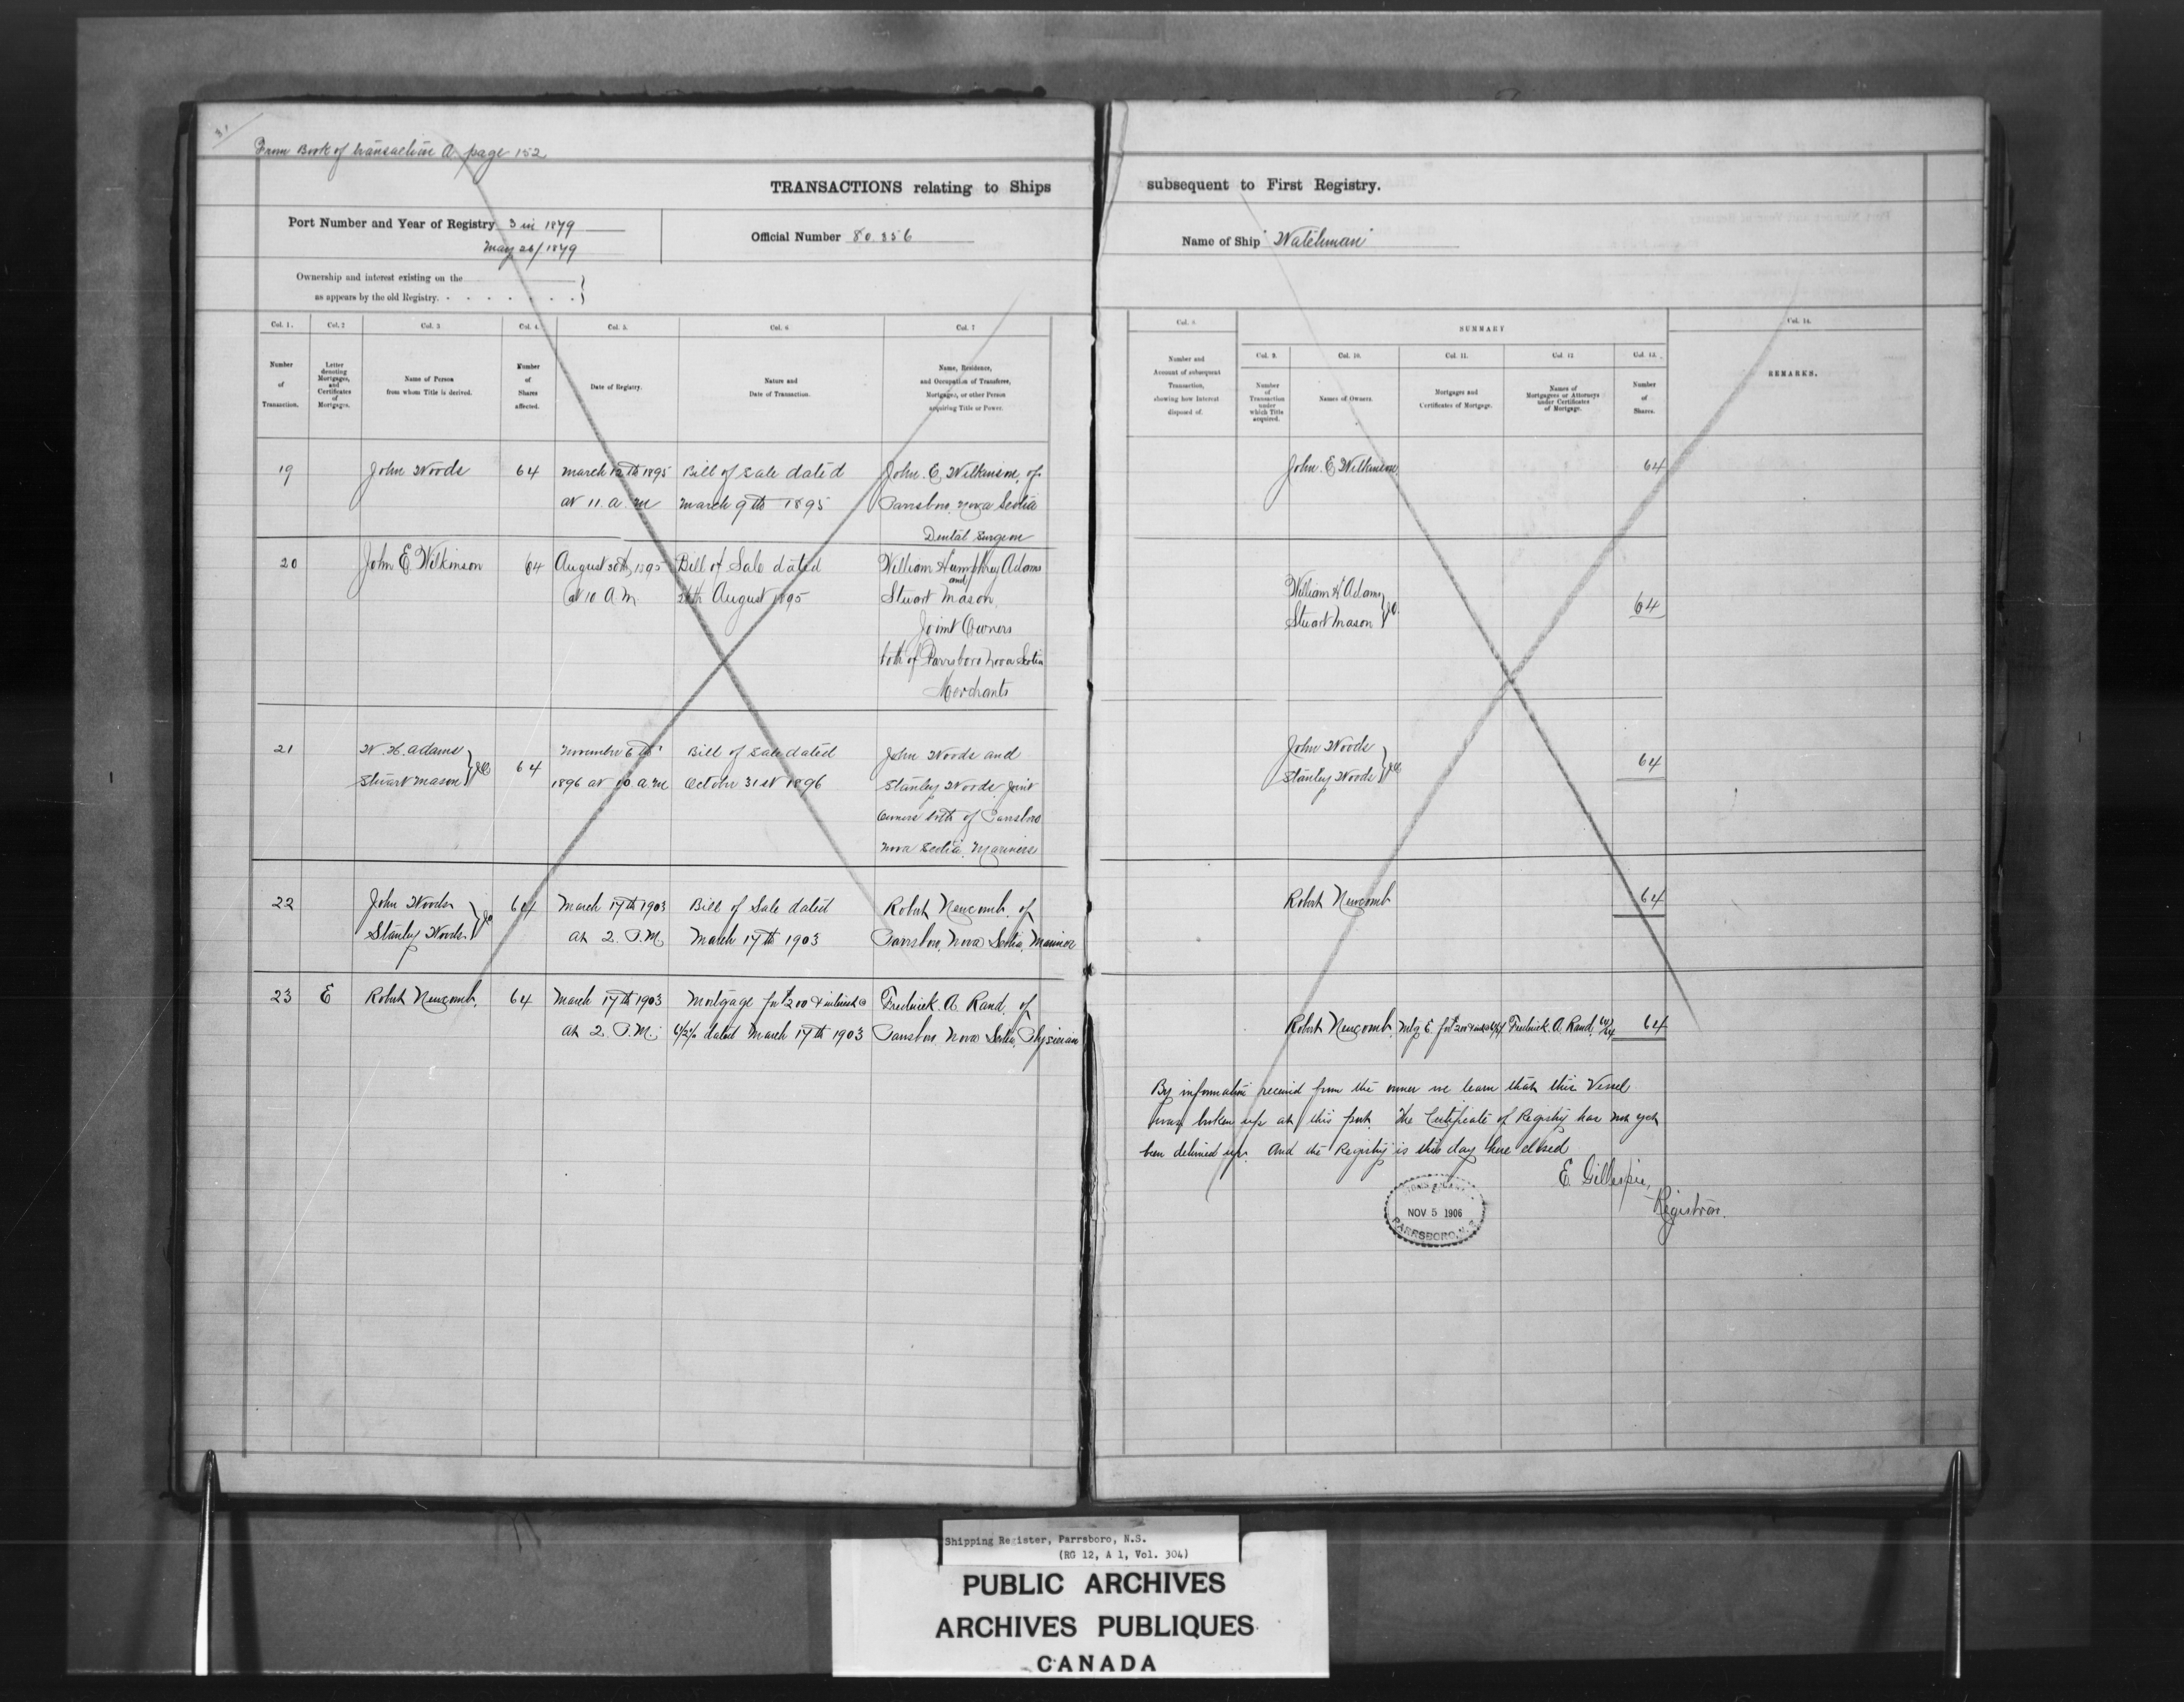 From Book of transaction A page 152
TRANSACTIONS relating to Ships
Port Number and Year of Registry 3 in 1879
May 26/1879
Official Number 80.856
Ownership and interest existing on the
as appears by the old Registry.
Col. 1.
Col. 2
Col. 3
Col. 4.
Col. 5.
Col. 6
Col. 7
Number
of
Transaction.
Letter
denoting
Mortgages,
and
Certificates
of
Mortgages.
Name of Person
from whom Title is derived.
Number
of
Shares
affected.
Date of Registry.
Nature and
Date of Transaction.
Name, Residence,
and Occupation of Transferee,
Mortgagee, or other Person
acquiring Title or Power.
19 John Woods 64 March 12th 1895 Bill of Sale dated John. E. Wilkinson, of
at 11. a. m March 9th 1895 Parrsboro, Nova Scotia
Dental Surgeon
20 John E Wilkinson 64 August 30th, 1895 Bill of Sale dated William Humphrey Adams
and
at 10 A.M August 1895 Stuart Mason.
Joint Owners
both of Parrsboro Nova Scotia
Merchants
21 W. H. Adams 64 November 6th Bill of Sale dated John Woods and
Stuart Mason } JO 1896 at 10 a.m October 31st 1896 Stanley Woods Joint
Owners both of Parrsboro
Nova Scotia. Mariners
22 John Woods 64 March 17th 1903 Bill of Sale dated Robert Newcomb, of
Stanley Woods } Jo at 2. P.M March 17th 1903 Parrsboro, Nova Scotia, Mariner
23 E Robert Newcomb, 64 March 17th 1903 Mortgage for $200 & interest @ Fredrick. A. Rand, of
at 2. P.M. 6 1/2% dated March 17th 1903 Parrsboro, Nova Scotia, Physician
subsequent to First Registry.
Name of Ship "Watchman"
Col. 8.
SUMMARY
Col. 14.
Number and
Account of subsequent
Transaction,
showing how Interest
disposed of.
Col. 9.
Col. 10.
Col. 11.
Col. 12
Col. 13.
Number
of
Transaction
under
which Title
acquired.
Names of Owners.
Mortgages and
Certificates of Mortgage.
Names of
Mortgagees or Attorneys
under Certificates
of Mortgage.
Number
of
Shares.
REMARKS.
John. E. Wilkinson. 64
William H Adams
Stuart Mason } JO. 64
John Woods
Stanley Woods } JO 64
Robert Newcomb 64
Robert Newcomb, Mtg E. for $200 Fredrick. A. Rand, 64/64 64
By information received from the owner we learn that this Vessel
was broken up at this port. The Certificate of Registry has not yet
been delivered up. And the Registry is this day here closed
E. Gillespie,
Registrar.
NOV 5 1906
PARRSBORO, N.S.
Shipping Register, Parrsboro, N.S.
(RG 12, A 1, Vol. 304)
PUBLIC ARCHIVES
ARCHIVES PUBLIQUES
CANADA